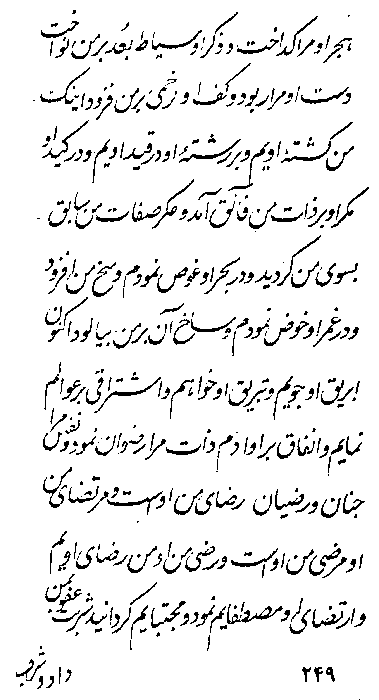 هجر او مرا گداخت و ذکر او سیاط بُعد بر من نواخت
دست او مرا ربود و کف او زخمی بر من فزود اینک
من کشتهٔ اویم و بر رشتهٔ او در قید اویم و در کید او
مکر او بر ذات من فائق آمد و مکر صفات من سابق
بسوی من گردید و در بحر او غوص نمودم و سخ من افزود
و در غمر او خوض نمودم و ساخ آن بر من بیالود اکنون
ابریق او جویم و تبریق او خواهم و اشتراقی بر عوالم
نمایم و انفاق براو ادم ذات مرا رضوان نمود و نفس مرا
جنان و رضیان رضای من اوست و مرتضای من
او مرضی من اوست و رضی من او من رضای اویم
و ارتضای او مصطفایم نمود و مجتبایم گردانید شربت عفو بمن
۲۴۹
داد و شرب